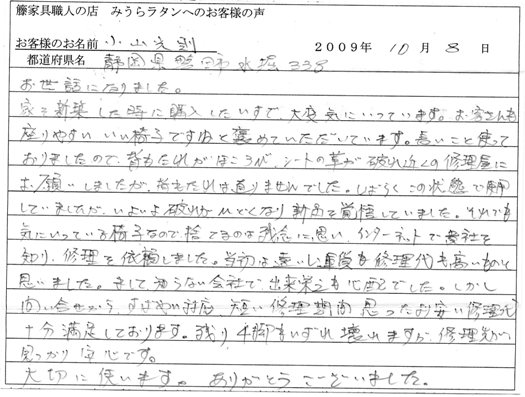 籐家具職人の店　みうらラタンへのお客様の声
お客様のお名前 小山
2009年 10月 8日
都道府県名 静岡県 水堀 338
お世話になりました。
家を新築した時に購入したいすで、大変気にいっています。お客さんも
座りやすい いい椅子ですねと褒めていただいています。長いこと使って
おりましたので、背もたれが シートの革が破れ近くの修理屋に
お願いしましたが、背もたれは直りませんでした。しばらくこの状態で使用
していましたが、いよいよ破れがひどくなり新品を覚悟していました。それでも
気にいっている椅子なので捨てるのは残念に思い インターネットで貴社を
知り、修理を依頼しました。当初は遠いし運賃も修理代も高いものと
思いました。そして知らない会社で出来栄えも心配でした。しかし
問い合せから すばやい対応、短い修理期間 思ったより安い修理代
十分満足しております。残り 4脚もいずれ壊れますが、修理先が
見つかり安心です。
大切に使います。ありがとうございました。